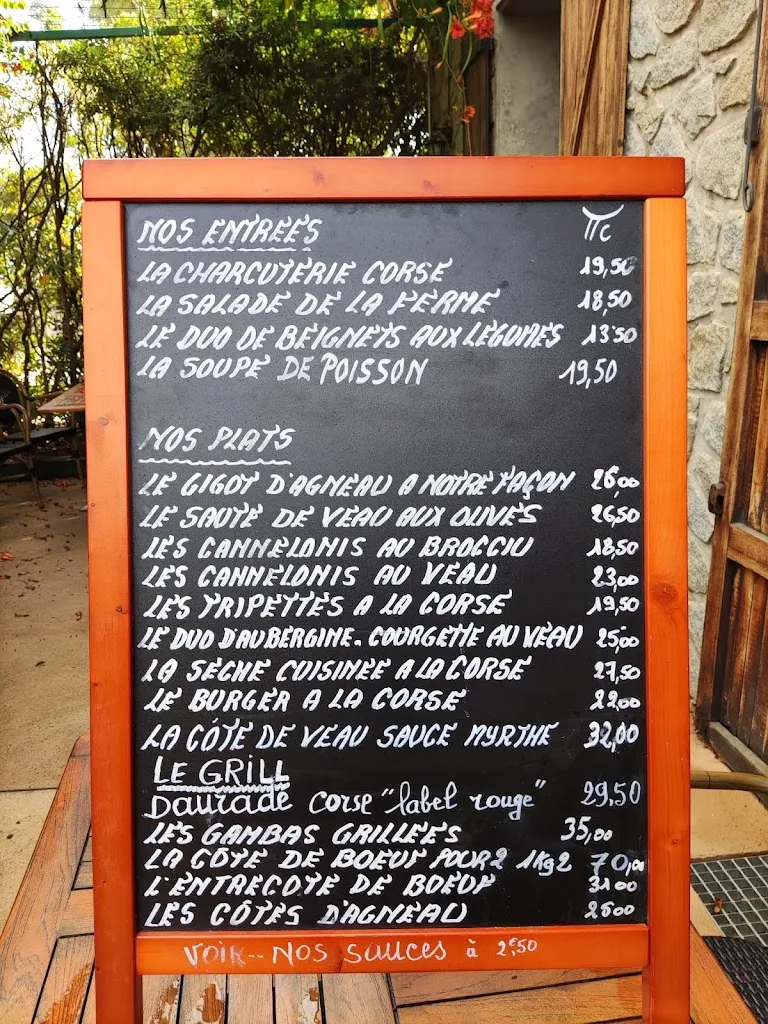 NOS ENTREES TTC
LA CHARCUTERIE CORSE 19,50
LA SALADE DE LA FERME 18,50
LE DUO DE BEIGNETS AUX LEGUMES 13 50
LA SOUPE DE POISSON 19,50
NOS PLATS
LE GIGOT D'AGNEAU A NOTRE FAÇON 26,00
LE SAUTE DE VEAU AUX OLIVES 26,50
LES CANNELONIS AU BROCCIU 18,50
LES CANNELONIS AU VEAU 23,00
LES TRIPETTES A LA CORSE 19,50
LE DUO D'AUBERGINE. COURGETTE AU VEAU 25,00
LA SECHE CUISINEE A LA CORSE 27,50
LE BURGER A LA CORSE 22,00
LA CÔTE DE VEAU SAUCE MYRTHE 32,00
LE GRILL
Daurade corse "label rouge" 29,50
LES GAMBAS GRILLEES 35,00
LA CÔTE DE BOEUF POUR 2 1kg2 70,00
L'ENTRECOTE DE BOEUF 31 00
LES CÔTES D'AGNEAU 25 00
VOIR-- NOS SAUCES à 2€50